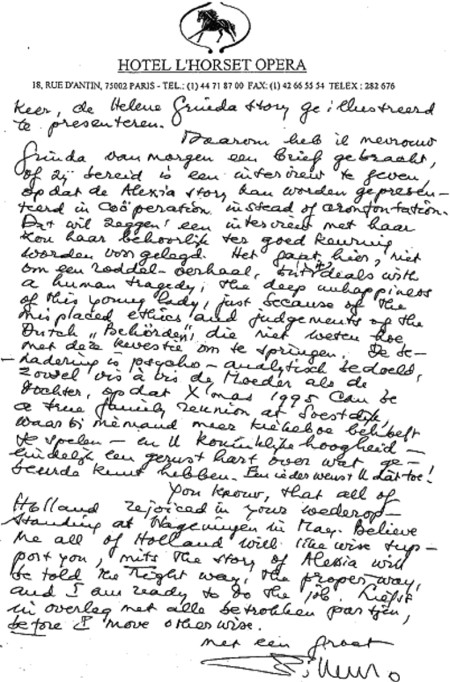 HOTEL L'HORSET OPERA
18, RUE D'ANTIN, 75002 PARIS - TEL.: (1) 44 71 87 00 FAX: (1) 42 66 55 54 TELEX : 282 676
keer, de Helene Grinda story geillustreerd
te presenteren.
Daarom heb ik mevrouw
Grinda vanmorgen een brief gebracht,
of zij bereid is een interview te geven,
opdat de Alexia story kan worden gepresen-
teerd in Coöperation instead of Confrontation.
Dat wil zeggen: een interview met haar
kon haar behoorlijk ter goedkeuring
worden voorgelegd. Het gaat hier, niet
om een roddel-verhaal, but it deals with
a human tragedy; the deep unhappiness
of this young lady, just because of the
misplaced ethics and judgements of the
Dutch „Behörden", die niet weten hoe
met deze kwestie om te springen. De be-
nadering is psycho-analytisch bedoeld,
zowel vis à vis de Moeder als de
dochter, opdat X'mas 1995 Can be
a true family reunion at Soestdijk,
waarbij niemand meer kiekeboe behoeft
te spelen — en U koninklijke hoogheid —
eindelijk een gerust hart over wat ge-
beurde kunt hebben. Een ieder wenst U dat toe!
You know, that all of
Holland rejoiced in your wederop-
standing at Wageningen in May. Believe
me all of Holland will likewise sup-
port you, mits the story of Alexia will
be told the right way, the proper way,
and I am ready to do the job. Liefst
in overleg met alle betrokken partijen,
before I move otherwise.
met een groet